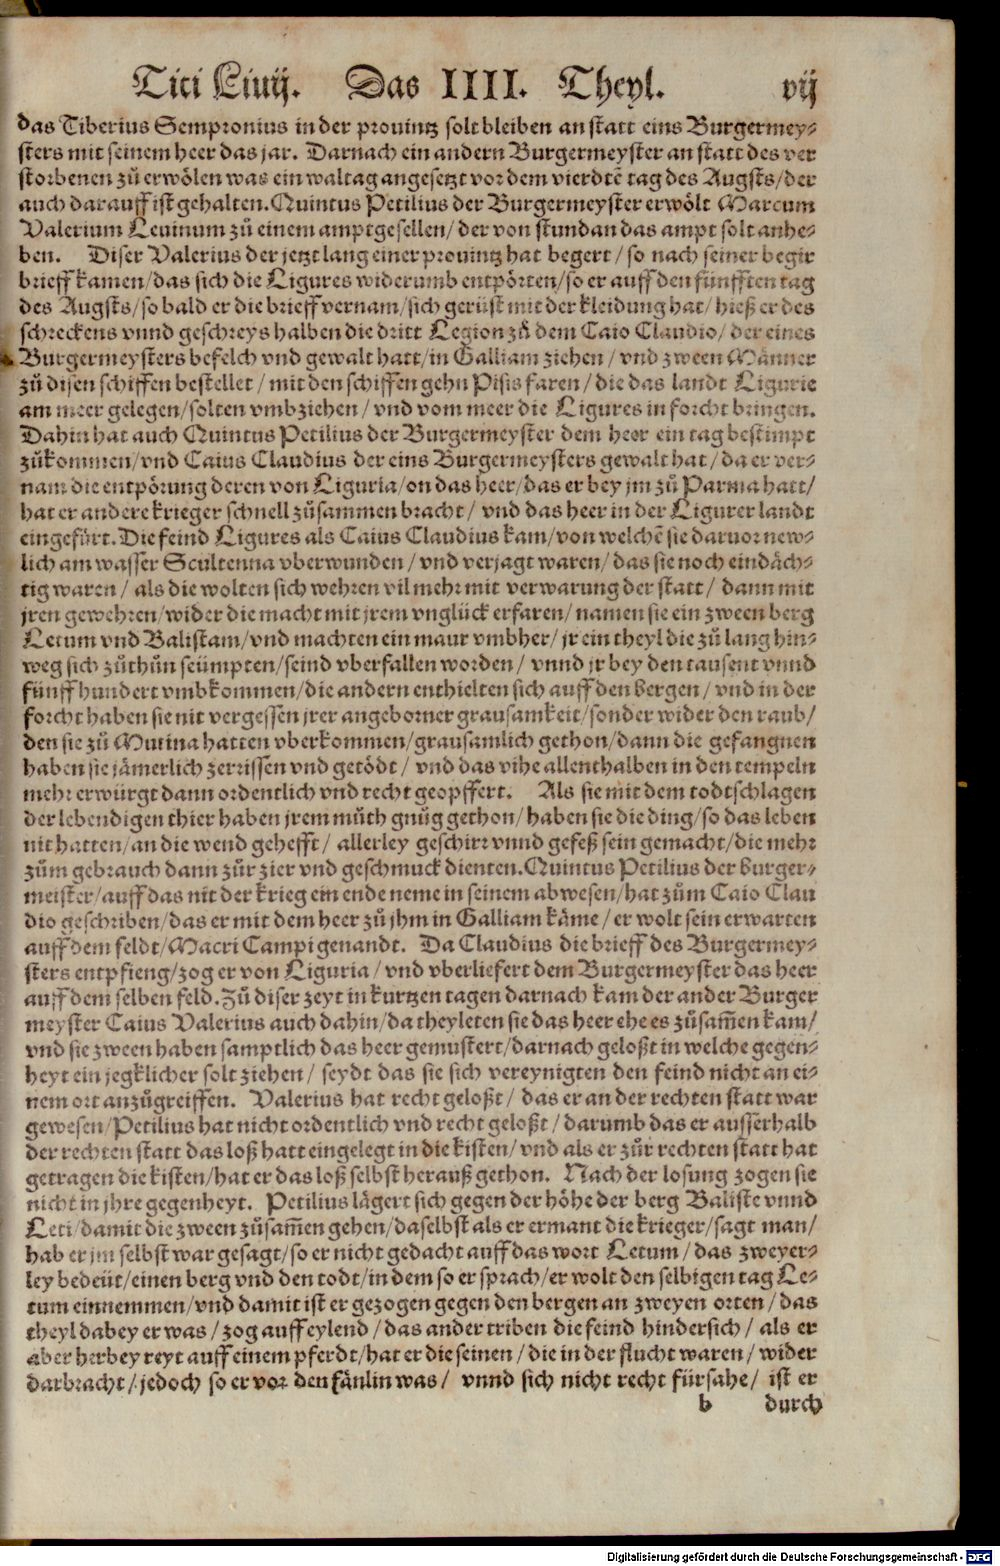 Titi Liuij. Das IIII. Theyl. vij
das Tiberius Sempronius in der prouintz solt bleiben an statt eins Burgermey⸗
sters mit seinem heer das jar. Darnach ein andern Burgermeyster an statt des ver
storbenen zů erwölen was ein waltag angesetzt vor dem vierdtē tag des Augsts/der
auch darauff ist gehalten. Quintus Petilius der Burgermeyster erwölt Marcum
Valerium Leuinum zů einem amptgesellen/ der von stundan das ampt solt anhe⸗
ben. Diser Valerius der jetzt lang einer prouintz hat begert/ so nach seiner begir
brieff kamen/das sich die Ligures widerumb entpörten/so er auff den fünfften tag
des Augsts/so bald er die brieff vernam/sich gerüst mit der kleidung hat/ hieß er des
schreckens vnnd geschreys halben die dritt Legion zů dem Caio Claudio/ der eines
Burgermeysters befelch vnd gewalt hatt/in Galliam ziehen/ vnd zween Männer
zů disen schiffen bestellet/ mit den schiffen gehn Pisis faren/ die das landt Ligurie
am meer gelegen/solten vmbziehen/ vnd vom meer die Ligures in forcht bringen.
Dahin hat auch Quintus Petilius der Burgermeyster dem heer ein tag bestimpt
zůkommen/vnd Caius Claudius der eins Burgermeysters gewalt hat/ da er ver⸗
nam die entpörung deren von Liguria/on das heer/das er bey jm zů Parma hatt/
hat er andere krieger schnell zůsammen bracht/ vnd das heer in der Ligurer landt
eingefürt. Die feind Ligures als Caius Claudius kam/von welchē sie daruor new⸗
lich am wasser Scultenna vberwunden/ vnd verjagt waren/das sie noch eindäch⸗
tig waren/ als die wolten sich wehren vil mehr mit verwarung der statt/ dann mit
jren gewehren/wider die macht mit jrem vnglück erfaren/namen sie ein zween berg
Letum vnd Balistam/vnd machten ein maur vmbher/ jr ein theyl die zů lang hin⸗
weg sich zůthůn seümpten/seind vberfallen worden/ vnnd jr bey den tausent vnnd
fünff hundert vmbkommen/die andern enthielten sich auff den bergen/ vnd in der
forcht haben sie nit vergessen jrer angeborner grausamkeit/sonder wider den raub/
den sie zů Mutina hatten vberkommen/grausamlich gethon/dann die gefangnen
haben sie jämerlich zerrissen vnd getödt/ vnd das vihe allenthalben in den tempeln
mehr erwürgt dann ordentlich vnd recht geopffert. Als sie mit dem todtschlagen
der lebendigen thier haben jrem můth gnůg gethon/haben sie die ding/so das leben
nit hatten/an die wend gehefft/ allerley geschirr vnnd gefeß sein gemacht/die mehr
zům gebrauch dann zůr zier vnd geschmuck dienten. Quintus Petilius der burger⸗
meister/auff das nit der krieg ein ende neme in seinem abwesen/hat zům Caio Clau
dio geschriben/das er mit dem heer zů jhm in Galliam käme/er wolt sein erwarten
auff dem feldt/Macri Campi genandt. Da Claudius die brieff des Burgermey⸗
sters entpfieng/zog er von Liguria/ vnd vberliefert dem Burgermeyster das heer
auff dem selben feld. Zů diser zeyt in kurtzen tagen darnach kam der ander Burger
meyster Caius Valerius auch dahin/da theyleten sie das heer ehe es zůsam̄en kam/
vnd sie zween haben samptlich das heer gemustert/darnach geloßt in welche gegen⸗
heyt ein jegklicher solt ziehen/ seydt das sie sich vereynigten den feind nicht an ei⸗
nem ort anzůgreiffen. Valerius hat recht geloßt/ das er an der rechten statt war
gewesen/Petilius hat nicht ordentlich vnd recht geloßt/ darumb das er ausserhalb
der rechten statt das loß hatt eingelegt in die kisten/vnd als er zůr rechten statt hat
getragen die kisten/hat er das loß selbst herauß gethon. Nach der losung zogen sie
nicht in jhre gegenheyt. Petilius lägert sich gegen der höhe der berg Baliste vnnd
Leti/damit die zween zůsam̄en gehen/daselbst als er ermant die krieger/sagt man/
hab er jm selbst war gesagt/so er nicht gedacht auff das wort Letum/ das zweyer⸗
ley bedeüt/einen berg vnd den todt/in dem so er sprach/er wolt den selbigen tag Le⸗
tum einnemmen/vnd damit ist er gezogen gegen den bergen an zweyen orten/ das
theyl dabey er was/zog auff eylend/das ander triben die feind hindersich/ als er
aber herbey reyt auff einem pferdt/hat er die seinen/die in der flucht waren/ wider
darbracht/ jedoch so er vor den fänlin was/ vnnd sich nicht recht fürsahe/ ist er
b durch
Digitalisierung gefördert durch die Deutsche Forschungsgemeinschaft - DFG